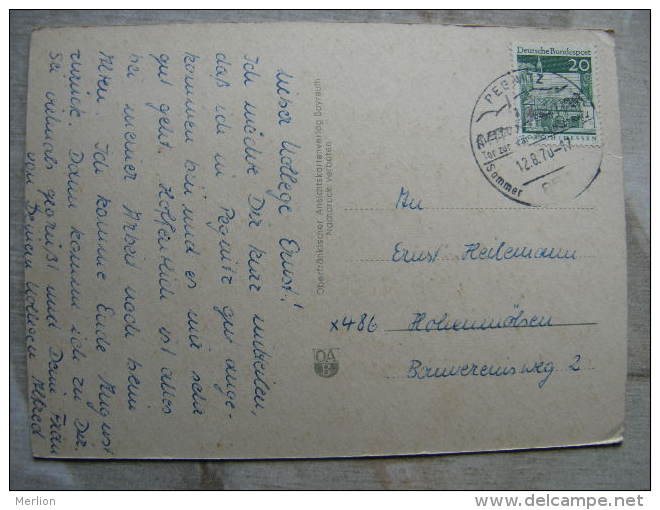 Lieber Kollege Ernst!
Ich möchte Dir kurz mitteilen,
daß ich in Pegnitz gut ange-
kommen bin und es mir sehr
gut geht. Hoffentlich ist alles
bei meiner Arbeit noch beim
Alten. Ich komme Ende August
zurück. Dann komme ich zu Dir.
Sei vielmals gegrüßt und Deine Frau
von Deinem Kollegen Alfred
Oberfränkischer Ansichtskartenverlag Bayreuth
Nachdruck verboten
OA
B
Deutsche Bundespost
20
HESSEN
PEGNITZ
Tor zur
12.8.70-17
Sommer
An
Ernst Heilemann
x486 Hohenmölsen
Bauvereinsweg 2
Merlion
www.delcampe.net